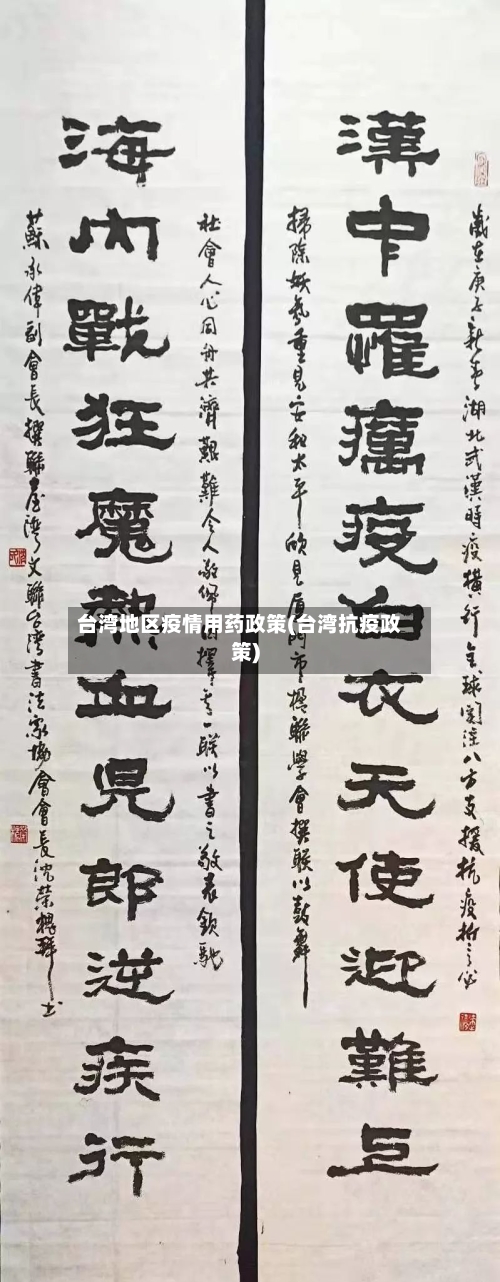 漢中罹癘疫白衣天使迎難上
歲在庚子新季湖北武漢時疫橫行全球關注八方支援抗疫
掃除妖氛重見安和太平欣見廈門市楹聯學會撰聯以鼓舞
社會人心同舟共濟艱難令人敬佩擇一聯以書之敬表欽馳
海內戰狂魔熱血児郎逆疾行
蘇永偉副會長撰聯臺灣文聯台灣書法家協會會長沈榮槐書
台湾地区疫情用药政策(台湾抗疫政
策)